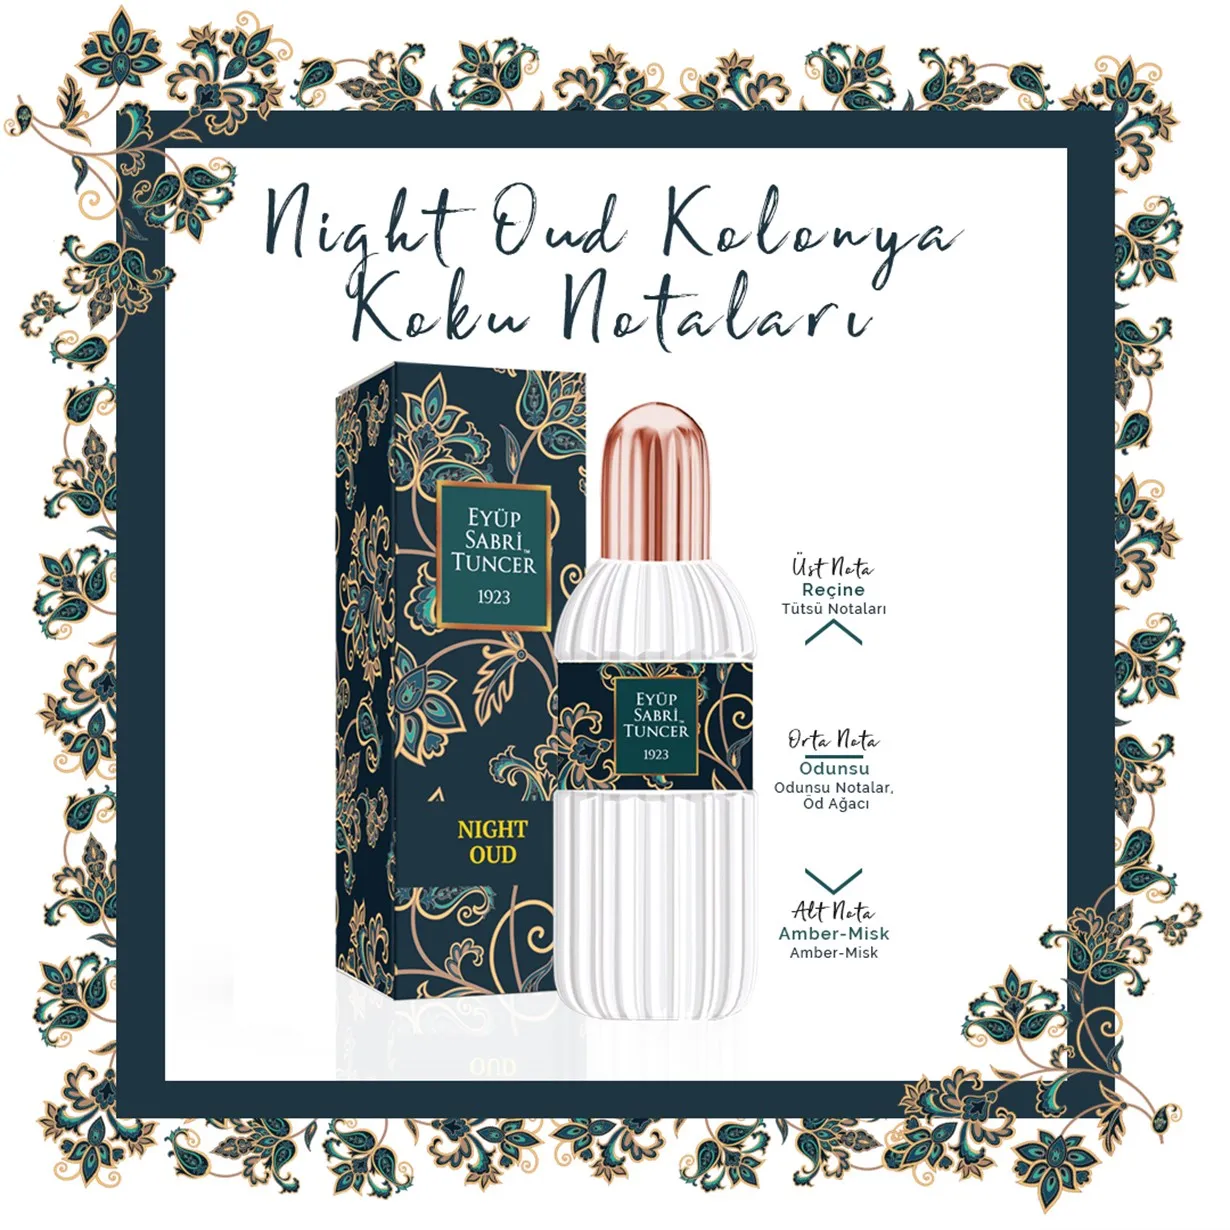 Night Oud Kolonya
Koku Notaları
EYÜP
SABRİ™
TUNCER
1923
NIGHT
OUD
EYÜP
SABRİ™
TUNCER
1923
Üst Nota
Reçine
Tütsü Notaları
Orta Nota
Odunsu
Odunsu Notalar,
Öd Ağacı
Alt Nota
Amber-Misk
Amber-Misk
OUD